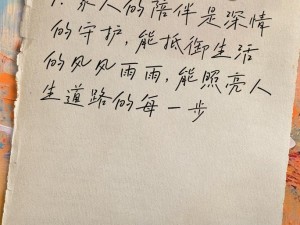 1.家人的陪伴是深情
的守护,能抵御生活
的风风雨雨,能照亮人
生道路的每一步